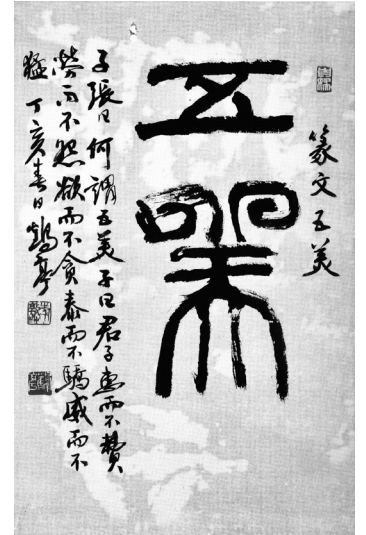 篆文五美
五美
子張曰何謂五美子曰君子惠而不費
勞而不怨欲而不貪泰而不驕威而不
猛丁亥春日